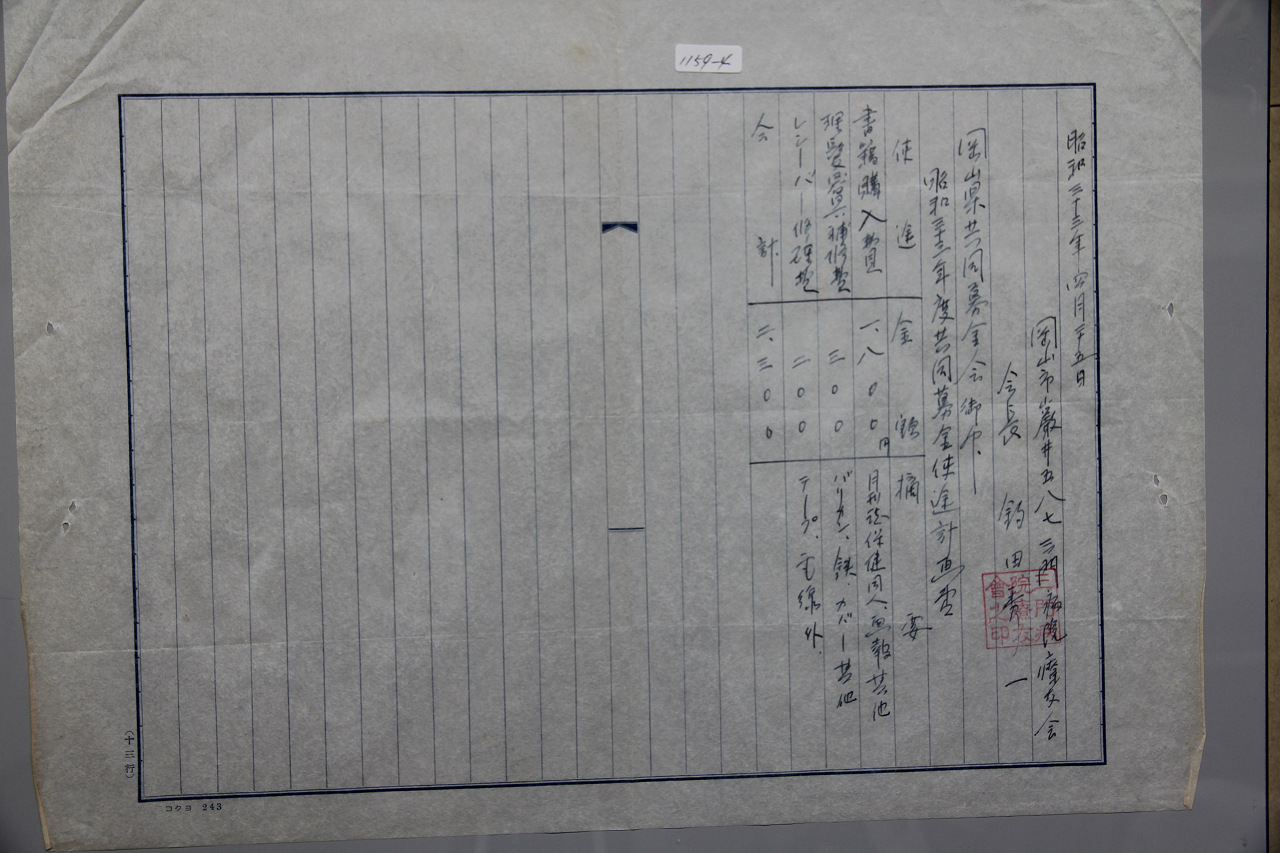 1159-4
昭和三十三年四月二十五日
岡山市巌井五八七 三門病院療友会
会長 田 一
岡山県共同募金会御中
昭和三十三年度共同募金使途計画書
使途 金額 摘要
書籍購入費 一、八〇〇円 月刊誌保健同人、画報其他
理髪器具補修費 三〇〇 バリカン、鋏、カバー其他
レシーバー修理費 二〇〇 テープ、電線外
合計 二、三〇〇
三門病院療友會之印
(十三行)
コクヨ 243